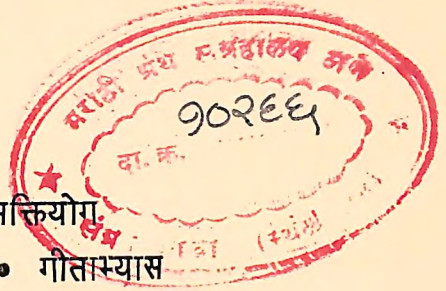 मराठी ग्रंथ संग्रहालय ठाणे
१०२६६
दा. क्र.
क्तियोग
• गीताभ्यास